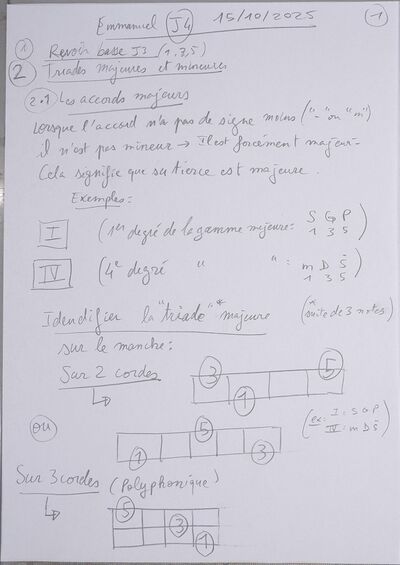 Emmanuel J4 15/10/2025 1
1 Revoir basse J3 (1,3,5)
2 Triades majeures et mineures
2.1 Les accords majeurs
Lorsque l'accord n'a pas de signe moins ("-" ou "m")
il n'est pas mineur → Il est forcément majeur.
Cela signifie que sa tierce est majeure.
Exemples:
I (1er degré de la gamme majeure: S G P
1 3 5)
IV (4e degré " " : m D S
1 3 5)
Identifier la "triade"* majeure (*suite de 3 notes)
sur le manche:
Sur 2 cordes
3 5
1
ou
5
1 3
(ex: I: S G P
IV: m D S)
Sur 3 cordes (Polyphonique)
5
3
1